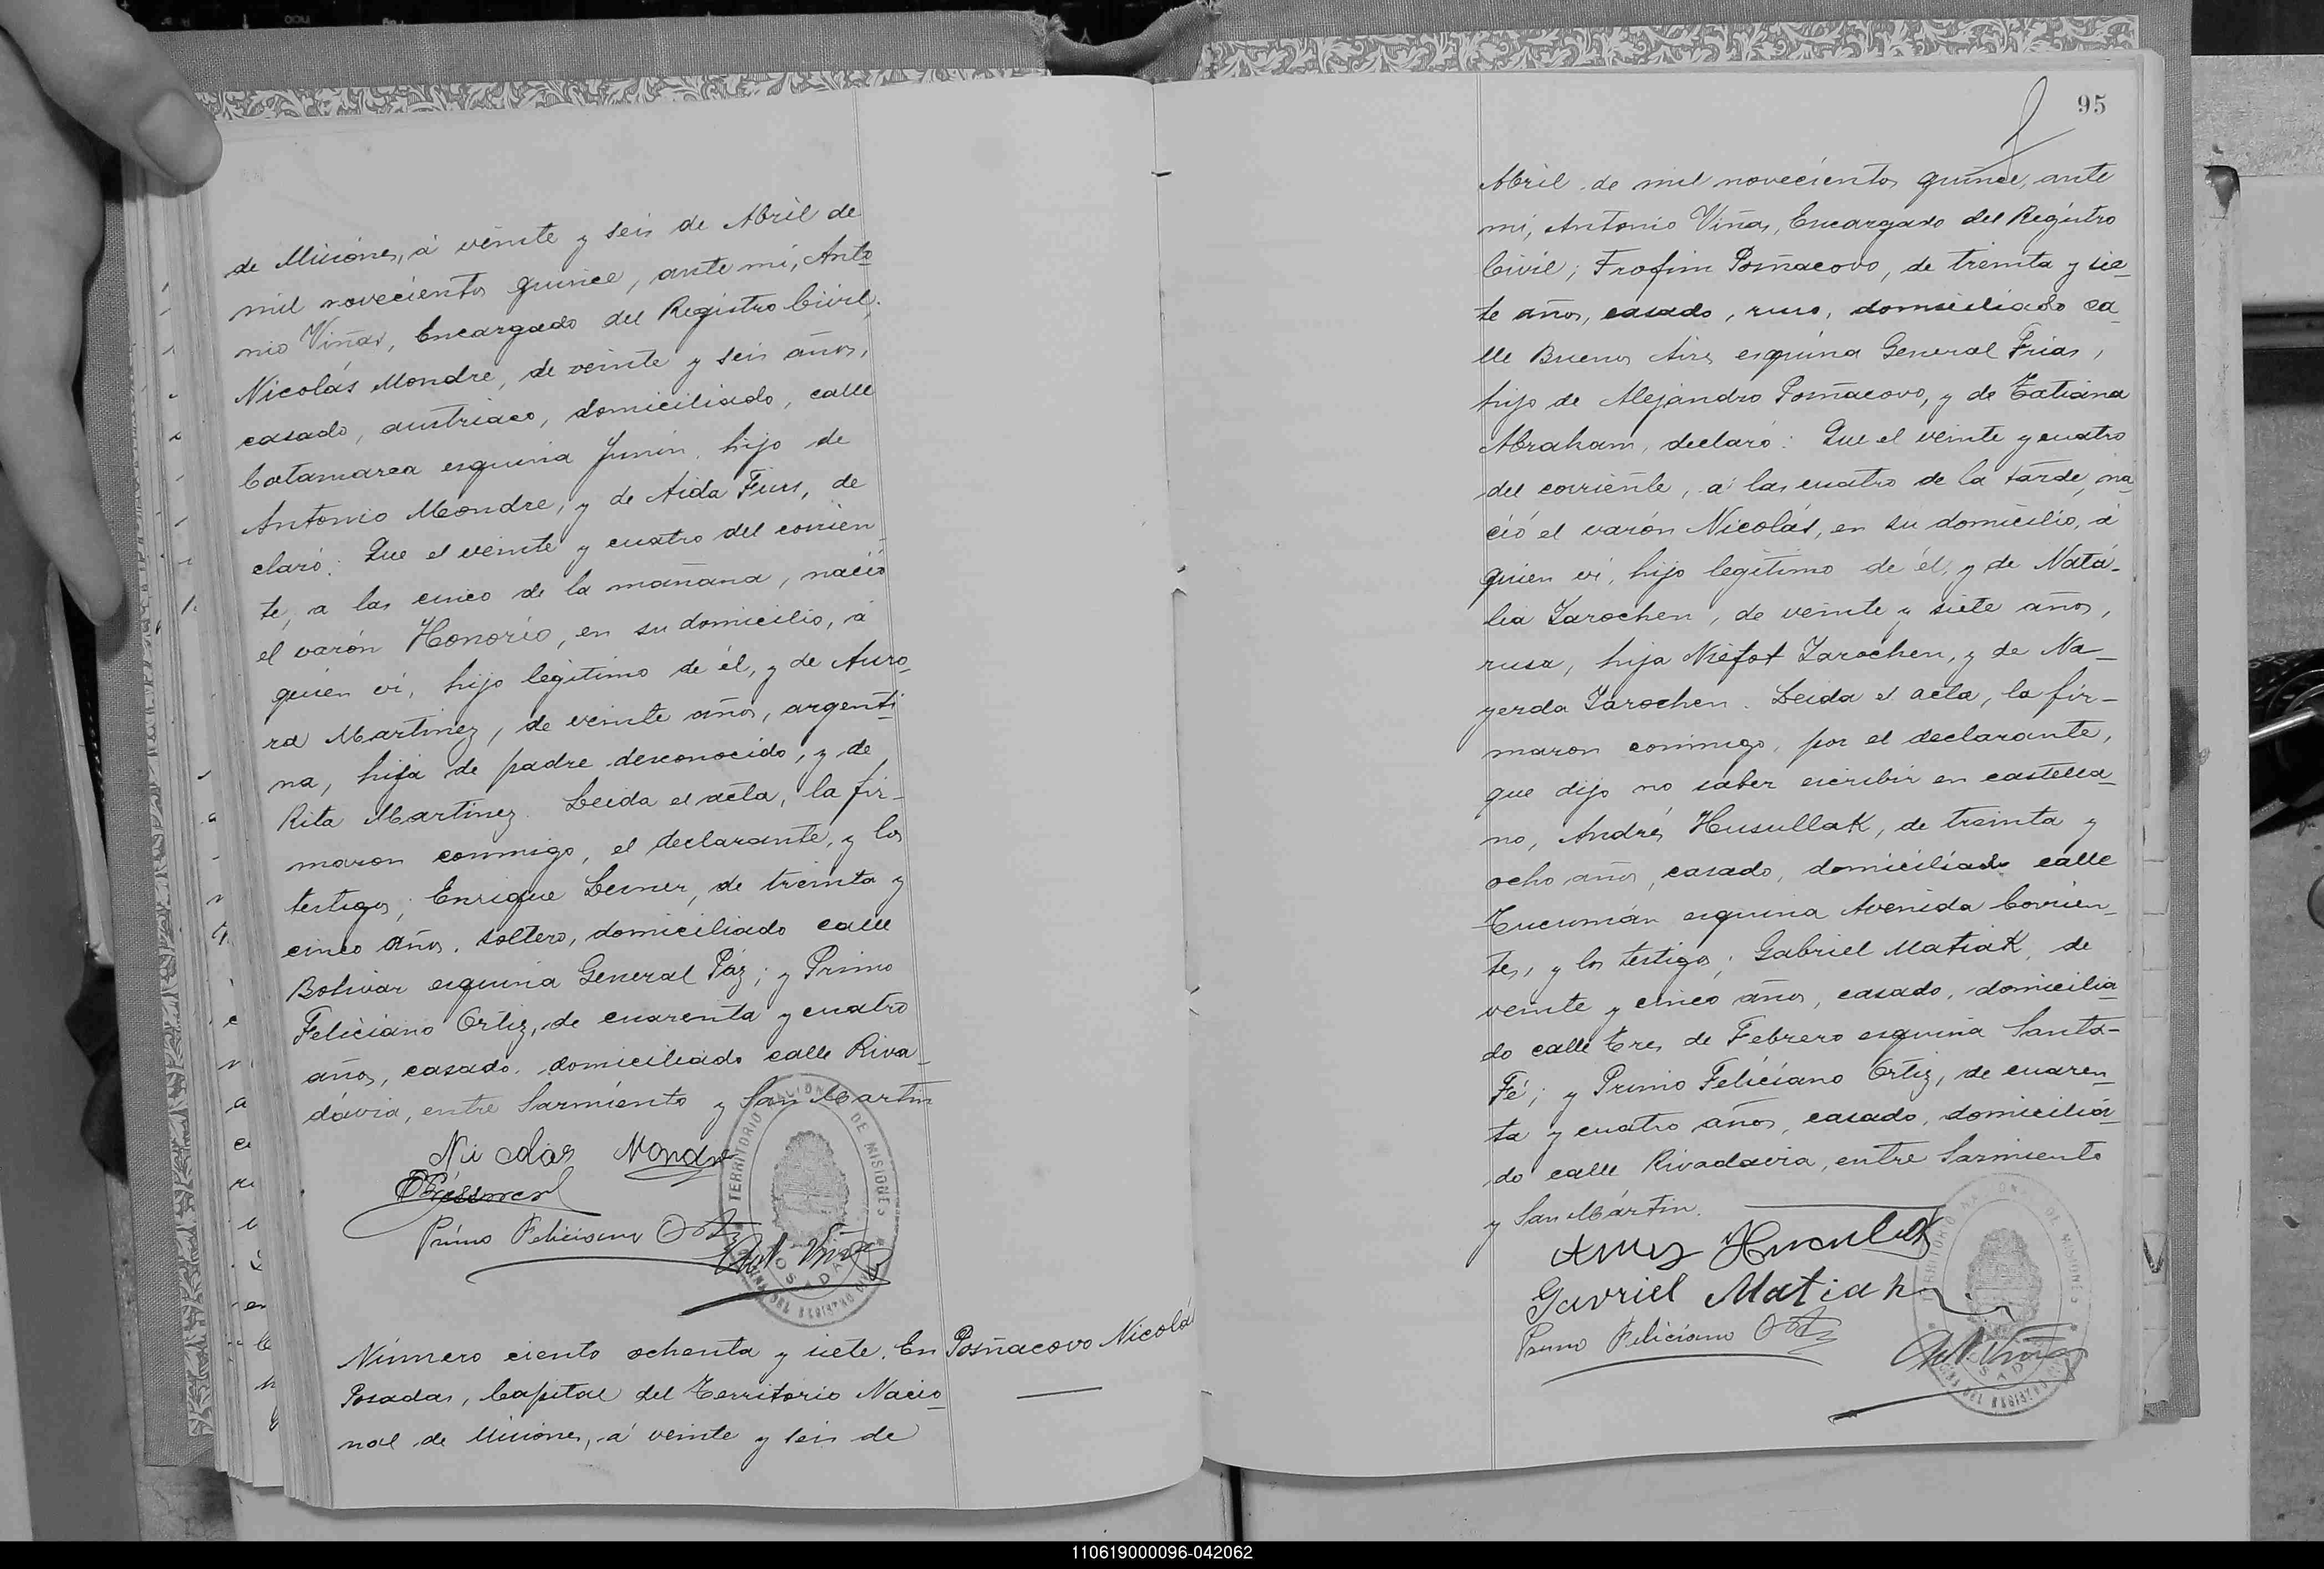 de Misiones, á veinte y seis de Abril de
mil novecientos quince, ante mí, Anto
nio Viñas, Encargado del Registro Civil.
Nicolás Mondre, de veinte y seis años,
casado, austriaco, domiciliado, calle
Catamarca esquina Junín, hijo de
Antonio Mondre, y de Aida Fius, de
claró: Que el veinte y cuatro del corrien
te, a las cinco de la mañana, nació
el varón Honorio, en su domicilio, á
quien ví, hijo legítimo de él, y de Auro
ra Martinez, de veinte años, argenti
na, hija de padre desconocido, y de
Rita Martinez. Leida el acta, la fir-
maron conmigo, el declarante, y los
testigos; Enrique Lesner, de treinta y
cinco años, soltero, domiciliado calle
Bolivar esquina General Páz; y Primo
Feliciano Ortiz, de cuarenta y cuatro
años, casado, domiciliado calle Riva-
davia, entre Sarmiento y San Martin
Nicolas Mondre
Primo Feliciano Ortiz
Ant Viñas
TERRITORIO NACIONAL DE MISIONES
OFICINA DEL REGISTRO CIVIL
POSADAS
Número ciento ochenta y siete. En
Posñacovo Nicolá
Posadas, Capital del Territorio Nacio
nal de Misiones, á veinte y seis de
95
Abril de mil novecientos quince, ante
mí, Antonio Viñas, Encargado del Registro
Civil; Trofim Posñacovo, de treinta y sie-
te años, casado, ruso, domiciliado ca-
lle Buenos Aires esquina General Frias,
hijo de Alejandro Posñacovo, y de Tatiana
Abraham, declaró: Que el veinte y cuatro
del corriente, á las cuatro de la tarde, na
ció el varón Nicolás, en su domicilio, á
quien ví, hijo legítimo de él, y de Nata-
lia Zarochen, de veinte y siete años,
rusa, hija Niefot Zarochen, y de Na-
yerda Zarochen. Leida el acta, la fir-
maron conmigo, por el declarante,
que dijo no saber escribir en castella-
no, Andrés Husullak, de treinta y
ocho años, casado, domiciliado calle
Tucumán esquina Avenida Corrien-
tes, y los testigos; Gabriel Matiak, de
veinte y cinco años, casado, domicilia-
do calle Tres de Febrero esquina Santa-
Fé; y Primo Feliciano Ortiz, de cuaren-
ta y cuatro años, casado, domicilia-
do calle Rivadavia, entre Sarmiento
y San Mártin.
Gavriel Matiak
Primo Feliciano Ortiz
Ant Viñas
TERRITORIO NACIONAL DE MISIONES
110619000096-042062